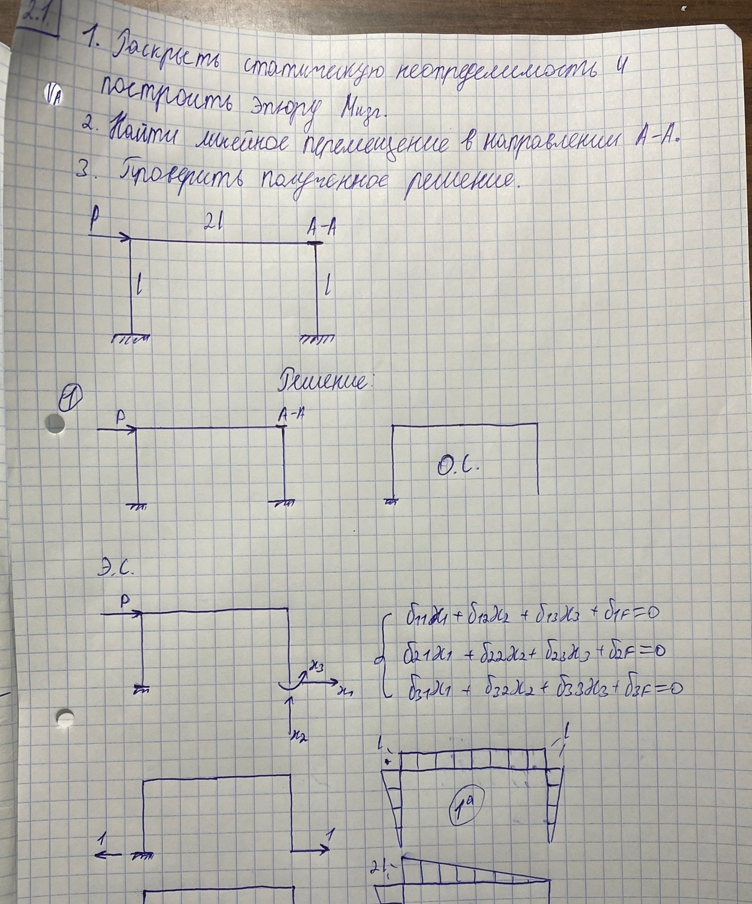 2.1.
1. Раскрыть статическую неопределимость и
построить эпюру Mизг.
VA
2. Найти линейное перемещение в направлении А-А.
3. Проверить полученное решение.
P 2l А-А
l l
Решение:
1
P А-А
О.С.
Э.С.
P
x3
x1
x2
δ11x1 + δ12x2 + δ13x3 + δ1F=0
δ21x1 + δ22x2 + δ23x3 + δ2F=0
δ31x1 + δ32x2 + δ33x3 + δ3F=0
l l
1 1
1а
2l